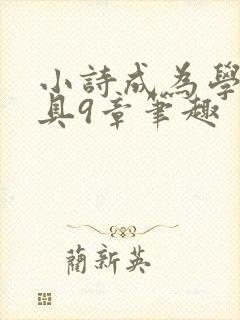 小詩成為學
具9章筆趣
蘭新英